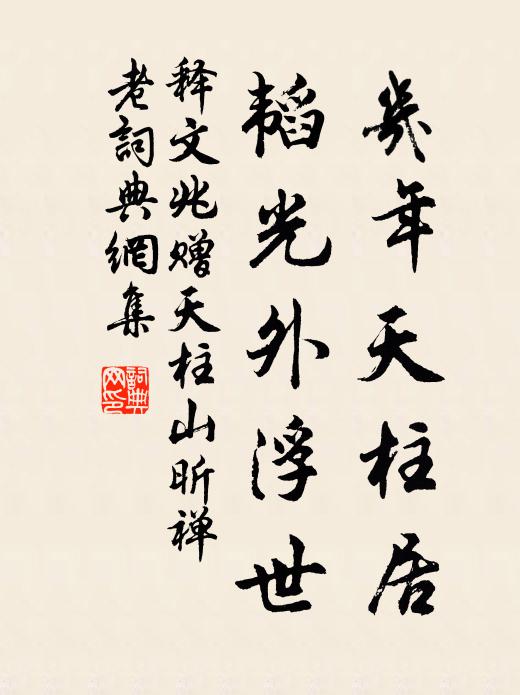 几年天柱居
韬光外浮世
释文兆赠天柱山昕禅
老詞典網集
詞典網印